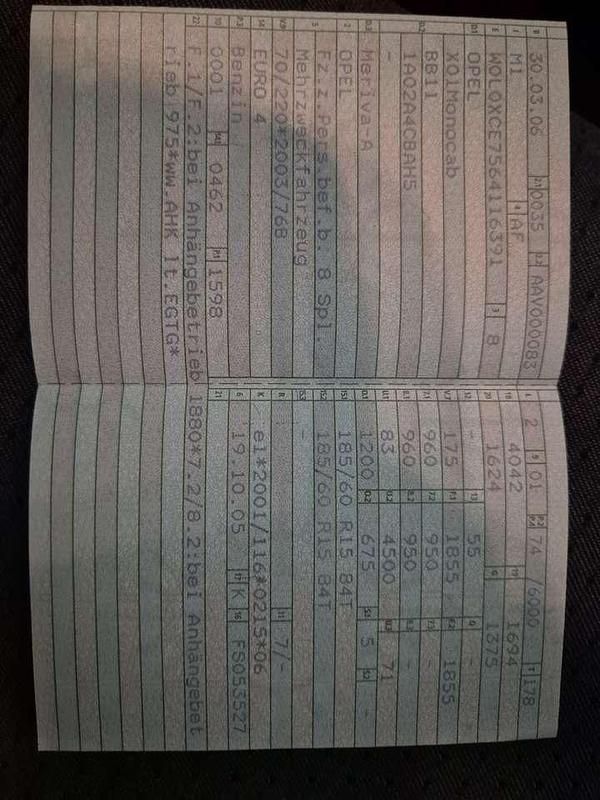 B 30.03.06 2.1 0035 2.2 AAV000083
J M1 4 AF
E W0L0XCE7564116391 3 8
D.1 OPEL
X01Monocab
D.2 BB11
1A02A4CBAH5
-
D.3 Meriva-A
2 OPEL
5 Fz.z.Pers.bef.b. 8 Spl.
Mehrzweckfahrzeug
V.9 70/220*2003/76B
14 EURO 4
P.3 Benzin
10 0001 14.1 0462 P.1 1598
L 2 9 01 P.2 P.4 74 /6000 T 178
18 4042 19 1694
20 1624 G 1375
12 - 13 55 Q -
V.7 175 F.1 1855 F.2 1855
7.1 960 7.2 950 7.3 -
8.1 960 8.2 950 8.3 -
U.1 83 U.2 4500 U.3 71
O.1 1200 O.2 675 S.1 5 S.2 -
15.1 185/60 R15 84T
15.2 185/60 R15 84T
15.3 -
R 11 7/-
K e1*2001/116*0215*06
6 19.10.05 17 K 16 FS053527
21
22 F.1/F.2:bei Anhängebetrieb 1880*7.2/8.2:bei Anhängebet
rieb 975*ww.AHK lt.EGTG*